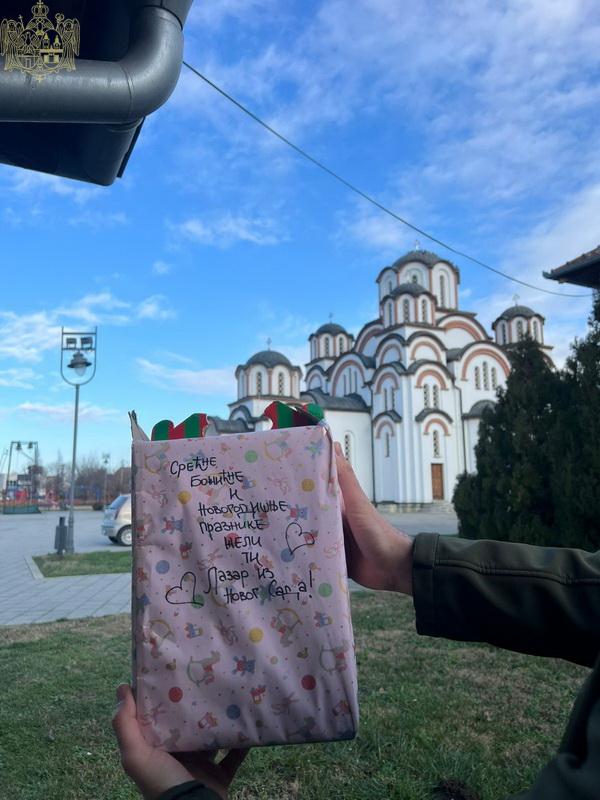 Срећне
Божићне
и
Новогодишње
празнике
жели
ти
Лазар из
Новог Сада!